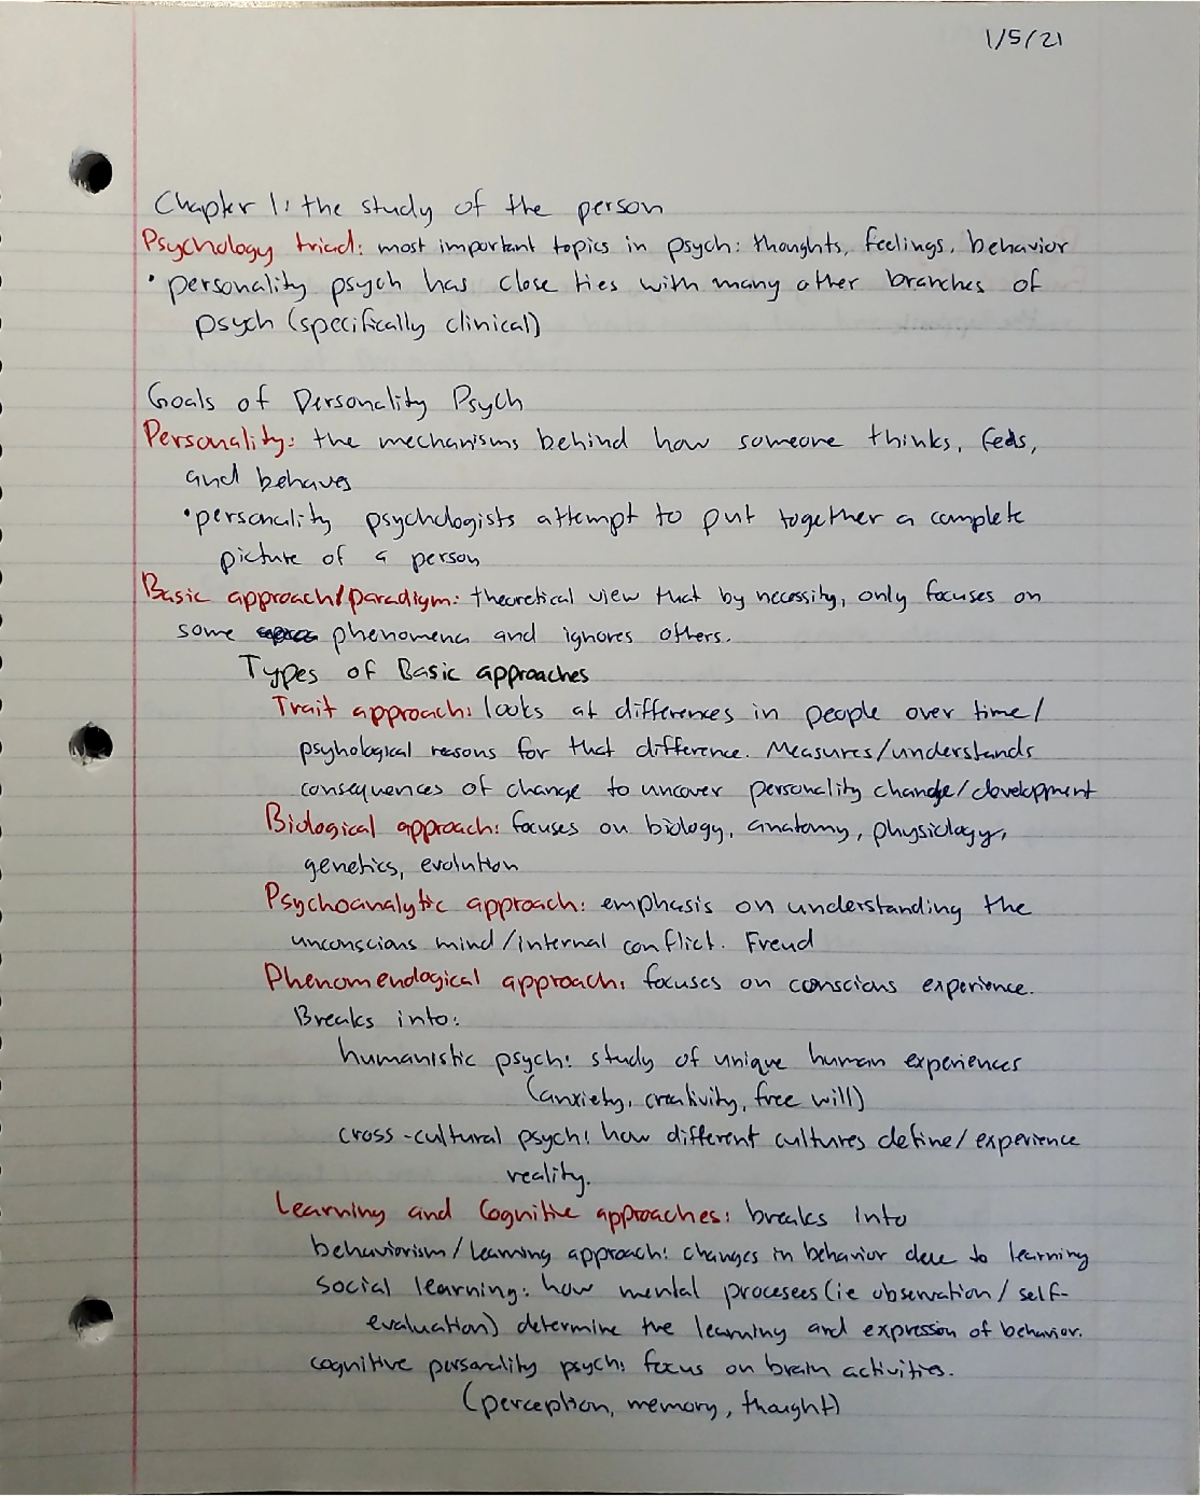 1/5/21
Chapter 1: the study of the person
Psychology triad: most important topics in psych: thoughts, feelings, behavior
• personality psych has close ties with many other branches of
psych (specifically clinical)
Goals of Personality Psych
Personality: the mechanisms behind how someone thinks, feels,
and behaves
• personality psychologists attempt to put together a complete
picture of a person
Basic approach/paradigm: theoretical view that by necessity, only focuses on
some phenomena and ignores others.
Types of Basic approaches
Trait approach: looks at differences in people over time/
psyhological reasons for that difference. Measures/understands
consequences of change to uncover personality change/development
Biological approach: focuses on biology, anatomy, physiology,
genetics, evolution
Psychoanalytic approach: emphasis on understanding the
unconscious mind/internal conflict. Freud
Phenomenological approach: focuses on conscious experience.
Breaks into:
humanistic psych: study of unique human experiences
(anxiety, creativity, free will)
cross-cultural psych: how different cultures define/experience
reality.
Learning and Cognitive approaches: breaks into
behaviorism/learning approach: changes in behavior due to learning
social learning: how mental procesees (ie observation/self-
evaluation) determine the learning and expression of behavior.
cognitive personality psych: focus on brain activities.
(perception, memory, thought)